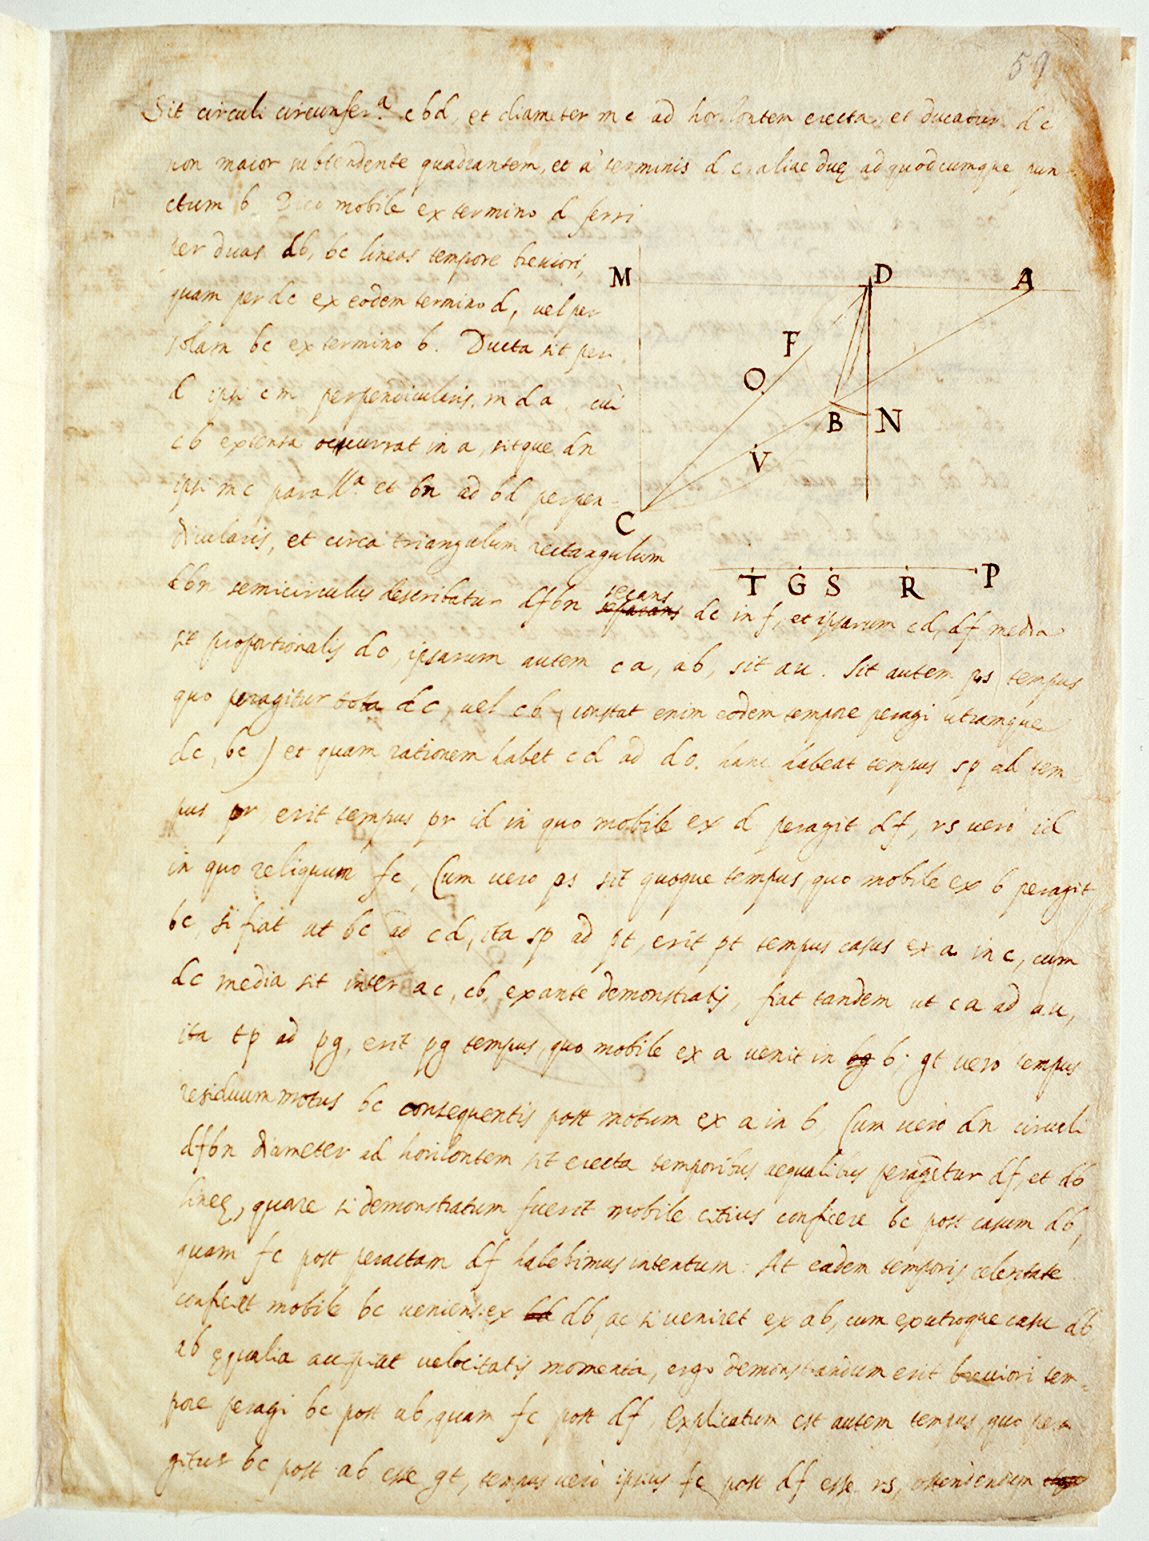 59
Sit circuli circunfer.ª cbd, et diameter mc ad horizontem erecta, et ducatur dc
non maior subtendente quadrantem, et à terminis d c, aliae duę ad quodcumque pun
ctum b. Dico mobile ex termino d ferri
per duas db, bc lineas tempore breviori,
quam per dc ex eodem termino d, vel per
solam bc ex termino b. Ducta sit per
d ipsi cm perpendicularis. mda, cui
cb extensa occurrat in a, sitque dn
ipsi mc parall.ª et bn ad bd perpen-
dicularis, et circa triangulum rectangulum
dbn semicirculus describatur dfbn secans separans dc in f, et ipsarum cd, df media
sit proportionalis do, ipsarum autem ca, ab, sit au. Sit autem ps tempus
quo peragitur tota dc, vel cb, constat enim eodem tempore peragi utramque
dc, bc) et quam rationem habet cd ad do. hanc habeat tempus sp ad tem
pus pr erit tempus pr id in quo mobile ex d peragit df, rs vero id
in quo reliquum fc, Cum vero ps sit quoque tempus, quo mobile ex b peragit
bc, si fiat ut bc ad cd, ita sp ad pt, erit pt tempus casus ex a in c, cum
dc media sit inter ac, cb, ex ante demonstratis, fiat tandem ut ca ad au,
ita tp ad pg, erit pg tempus, quo mobile ex a venit in b; gt vero tempus
residuum motus bc consequentis post motum ex a in b, Cum vero dn circuli
dfbn diameter ad horizontem sit erecta temporibus aequalibus peragetur df, et db
lineę, quare si demonstratum fuerit mobile citius conficere bc post casum db,
quam fc post peractam df habebimus intentum: At eadem temporis celeritate
conficiet mobile bc veniens ex db, ac si veniret ex ab, cum ex utroque casu db
ab ęqualia accipiat velocitatis momenta, ergo demonstrandum erit breviori tem-
pore peragi bc post ab, quam fc post df, Explicatum est autem tempus, quo pera
gitur bc post ab esse gt, tempus verò ipsius fc post df esse rs, ostendendum
M D A
F
O
B N
V
C
T G S R P